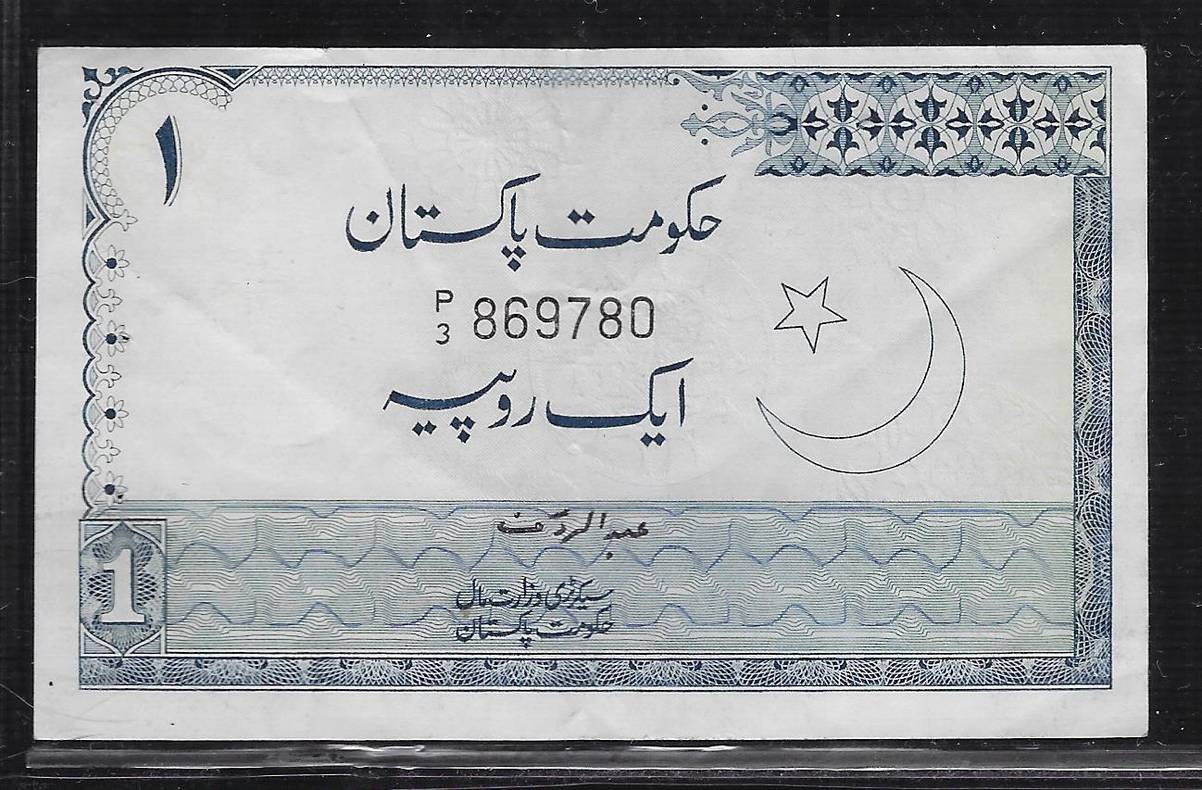 ۱
حکومت پاکستان
P/3 869780
ایک روپیہ
عبد الرؤف
سیکرٹری وزارت مال
حکومت پاکستان
1